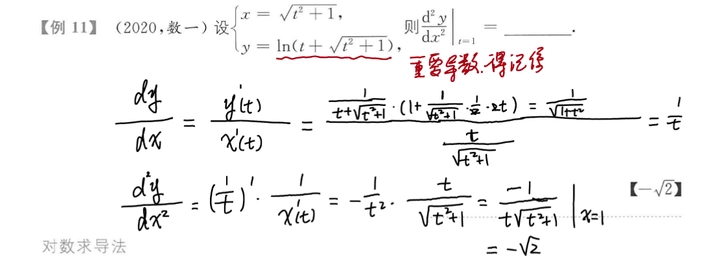 【例 11】 (2020,数一) 设 { x = √(t²+1), y = ln(t + √(t²+1)), 则 d²y/dx² |ₜ₌₁ = ________.
重要导数.得记得
dy/dx = y'(t)/x'(t) = [1/(t+√(t²+1)) · (1+ 1/√(t²+1) · 1/2 · 2t) = 1/√(1+t²)] / [t/√(t²+1)] = 1/t
d²y/dx² = (1/t)' · 1/x'(t) = -1/t² · t/√(t²+1) = -1/(t√(t²+1)) |x=1
【-√2】
= -√2
对数求导法